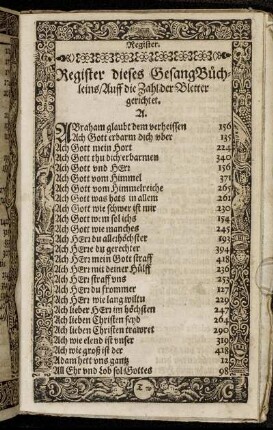 Register.
Register dieses GesangBüch-
leins/Auff die Zahl der Bletter
gerichtet.
A.
ABraham glaubt dem verheissen 156
Ach Gott erbarm dich vber 158
Ach Gott mein Hort 224
Ach Gott thu dich erbarmen 340
Ach Gott vnd HErr 156
Ach Gott vom Himmel 371
Ach Gott vom Himmelreiche 265
Ach Gott was hats in allem 261
Ach Gott wie schwer ist mir 230
Ach Gott wem sol ichs 154
Ach Gott wie manches 245
Ach HErr du allerhöchster 193
Ach HErre du gerechter 394
Ach HErr mein Gott straff 418
Ach HErr mit deiner Hülff 236
Ach HErr straff vns 253
Ach HErr du frommer 127
Ach HErr wie lang wiltu 229
Ach lieber HErr im höchsten 247
Ach lieben Christen seyd 264
Ach lieben Christen trawret 290
Ach wie elend ist vnser 319
Ach wie groß ist der 418
Adam hett vns gantz 12
All Ehr vnd Lob sol Gottes 98